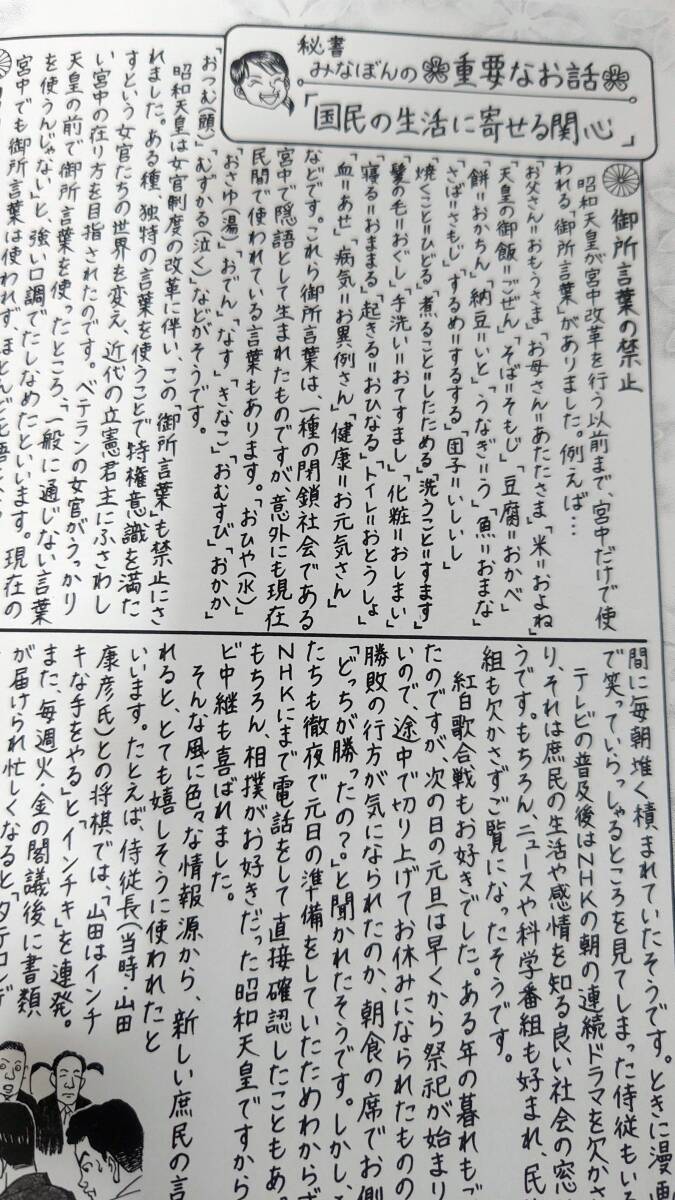 秘書
みなぼんの❀重要なお話❀
「国民の生活に寄せる関心」
御所言葉の禁止
昭和天皇が宮中改革を行う以前まで、宮中だけで使
われる「御所言葉」がありました。例えば…
「お父さん＝おもうさま」「お母さん＝おたたさま」「米＝およね」
「天皇の御飯＝ごぜん」「そば＝そもじ」「豆腐＝おかべ」
「餅＝おかちん」「納豆＝いと」「うなぎ＝う」「魚＝おまな」
「さば＝さもじ」「するめ＝するする」「団子＝いしいし」
「焼くこと＝ひどる」「煮ること＝したためる」「洗うこと＝すます」
「髪の毛＝おぐし」「手洗い＝おてすまし」「化粧＝おしまい」
「寝る＝おまる」「起きる＝おひなる」「トイレ＝おとうしょ」
「血＝あせ」「病気＝お異例さん」「健康＝お元気さん」
などです。これら御所言葉は、一種の閉鎖社会である
宮中で隠語として生まれたものですが、意外にも現在
民間で使われている言葉もあります。「おひや（水）」
「おさゆ（湯）」「おでん」「なす」「きなこ」「おむすび」「おかか」
「おつむ（頭）」「むずかる（泣く）」などがそうです。
昭和天皇は女官制度の改革に伴い、この「御所言葉」も禁止にさ
れました。ある種、独特の言葉を使うことで特権意識を満た
すという女官たちの世界を変え、近代の立憲君主にふさわし
い宮中の在り方を目指されたのです。ベテランの女官がうっかり
天皇の前で御所言葉を使ったところ、「一般に通じない言葉
を使うんじゃない」と、強い口調でたしなめたといいます。現在の
宮中でも御所言葉は使われず、ほとんど
間に毎朝堆く積まれていたそうです。ときに漫画
で笑っていらっしゃるところを見てしまった侍従もい
テレビの普及後はNHKの朝の連続ドラマを欠かさ
り、それは庶民の生活や感情を知る良い社会の窓
うです。もちろん、ニュースや科学番組も好まれ、民
組も欠かさずご覧になったそうです。
紅白歌合戦もお好きでした。ある年の暮れもご
たのですが、次の日の元旦は早くから祭祀が始まり
いので、途中で切り上げてお休みになられたものの
勝敗の行方が気になられたのか、朝食の席でお側
「どっちが勝ったの？」と聞かれたそうです。しかし、
たちも徹夜で元日の準備をしていたためわからず
NHKにまで電話をして直接確認したこともあ
もちろん、相撲がお好きだった昭和天皇ですから
ビ中継も喜ばれました。
そんな風に色々な情報源から、新しい庶民の言
れると、とても嬉しそうに使われたと
います。たとえば、侍従長（当時・山田
康彦氏）との将棋では、「山田はインチ
キな手をやる」と「インチキ」を連発。
また、毎週火・金の閣議後に書類
が届けられ忙しくなると「タテコンデ